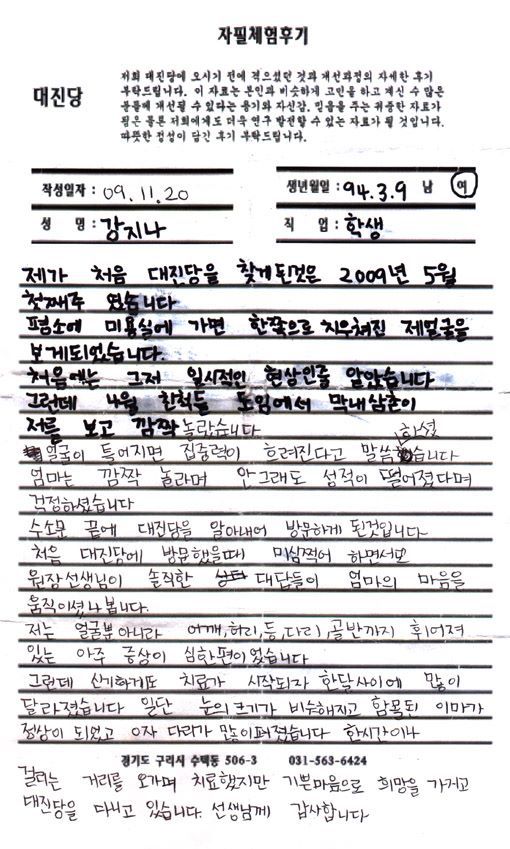 자필체험후기
대진당
저희 대진당에 오시기 전에 적으셨던 것과 개선과정의 자세한 후기
부탁드립니다. 이 자료는 본인과 비슷하게 고민을 하고 계신 수 많은
분들께 개선될 수 있다는 용기와 자신감, 믿음을 주는 귀중한 자료가
됨은 물론 저희에게도 더욱 연구 발전할 수 있는 자료가 될 것입니다.
따뜻한 정성이 담긴 후기 부탁드립니다.
작성일자 : 09.11.20
생년월일 : 94.3.9 남 여
성 명 : 강지나
직 업 : 학생
제가 처음 대진당을 찾게된것은 2009년 5월
첫째주 였습니다
평소에 미용실에 가면 한쪽으로 치우쳐진 제얼굴을
보게되었습니다.
처음에는 그저 일시적인 현상인줄 알았습니다
그런데 4월 친척들 모임에서 막내삼촌이
저를 보고 깜짝 놀랐습니다
얼굴이 틀어지면 집중력이 흐려진다고 말씀하셨습니다
엄마는 깜짝 놀라며 안그래도 성적이 떨어졌다며
걱정하셨습니다
수소문 끝에 대진당을 알아내어 방문하게 된것입니다
처음 대진당에 방문했을때 미심쩍어 하면서도
원장선생님이 솔직한 대답들이 엄마의 마음을
움직이셨나 봅니다.
저는 얼굴뿐아니라 어깨,허리,등,다리,골반까지 휘어져
있는 아주 증상이 심한편이었습니다
그런데 신기하게도 치료가 시작되자 한달사이에 많이
달라졌습니다 일단 눈의크기가 비슷해지고 함몰된 이마가
정상이 되었고 O자 다리가 많이펴졌습니다 한시간이나
경기도 구리시 수택동 506-3 031-563-6424
걸리는 거리를 오가며 치료했지만 기쁜마음으로 희망을 가지고
대진당을 다니고 있습니다. 선생님께 감사합니다